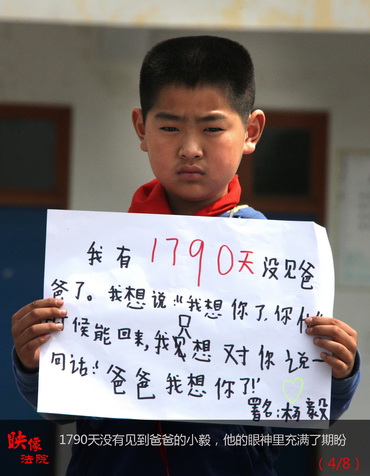 我有1790天没见爸
爸了。我想说:“我想你了,你什
时候能回来,我只想对你说一
句话:“爸爸我想你了!”
署名:杨毅
映像
法院
1790天没有见到爸爸的小毅，他的眼神里充满了期盼
（4/8）